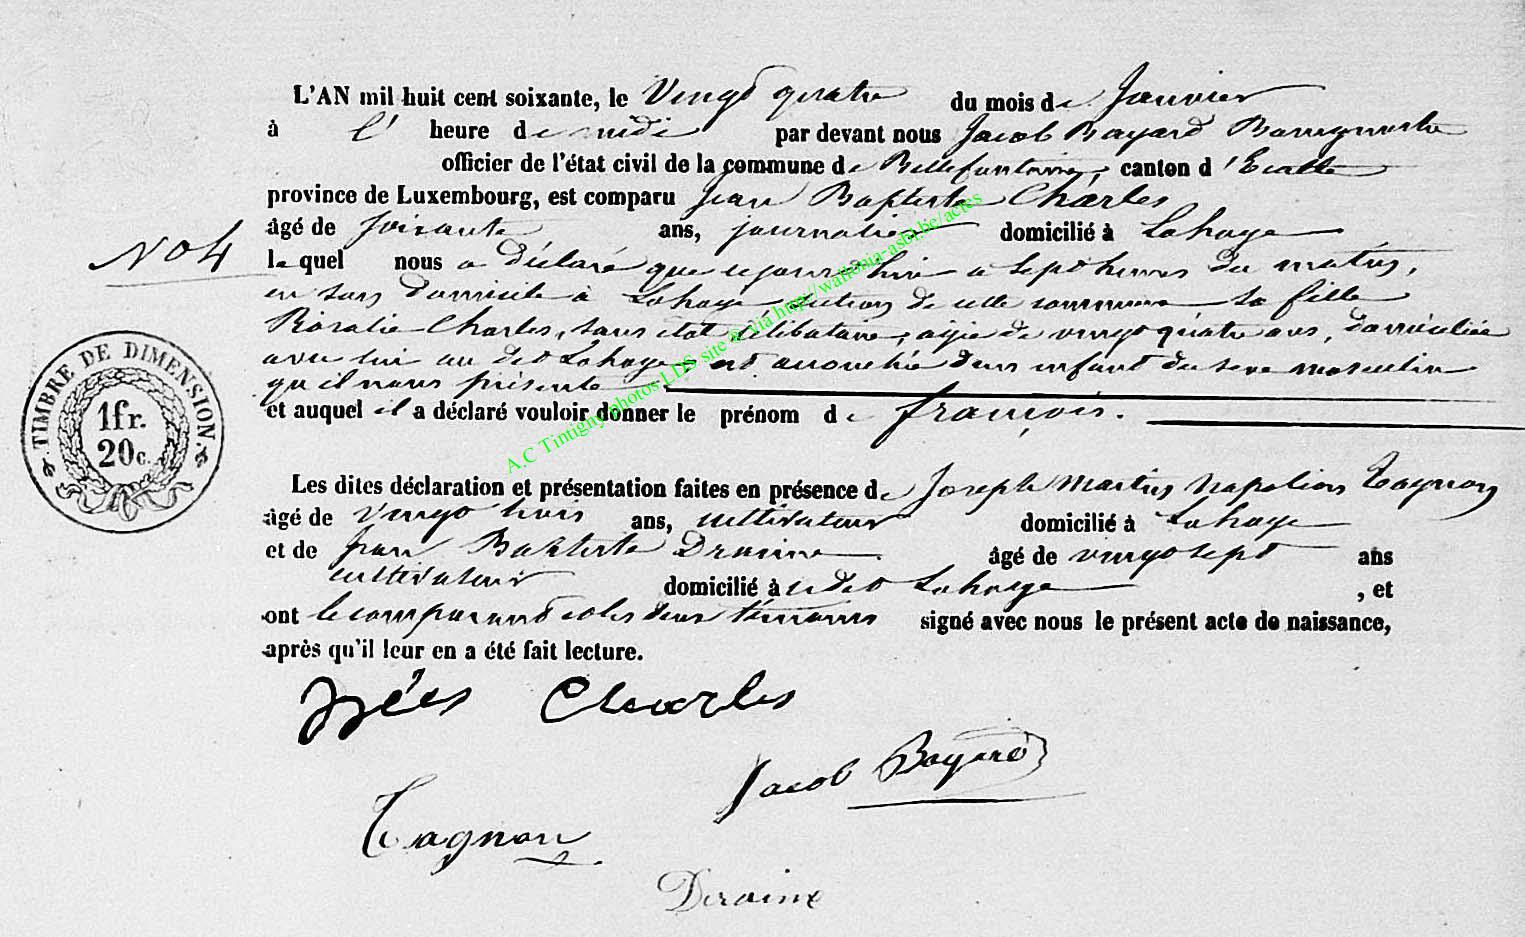 L'AN mil huit cent soixante, le Vingt quatre du mois de Janvier
à l' heure de midi par devant nous Jacob Bayard Bourgmestre
officier de l'état civil de la commune de Bellefontaine, canton d'Etalle
province de Luxembourg, est comparu Jean Baptiste Charles
âgé de soixante ans, journalier domicilié à Lahage
N° 4
le quel nous a déclaré que cejourd'hui a sept heures du matin,
en son domicile à Lahage section de cette commune sa fille
Rosalie Charles, sans état célibataire, agée de vingt quatre ans, domiciliée
avec lui au dit Lahage est accouchée d'un enfant du sexe masculin
qu'il nous présente
et auquel il a déclaré vouloir donner le prénom de françois.
TIMBRE DE DIMENSION.
1fr.
20c.
Les dites déclaration et présentation faites en présence de Joseph Martin Napoléon Tagnon
âgé de vingt trois ans, cultivateur domicilié à Lahage
et de jean Baptiste Draime âgé de vingt sept ans
cultivateur domicilié à udit Lahage, et
ont le comparant et les deux témoins signé avec nous le présent acte de naissance,
après qu'il leur en a été fait lecture.
Charles
Jacob Bayard
Tagnon
Deraime
A.C Tintigny photos LDS site @ via http://wallonia-asbl.be/actes